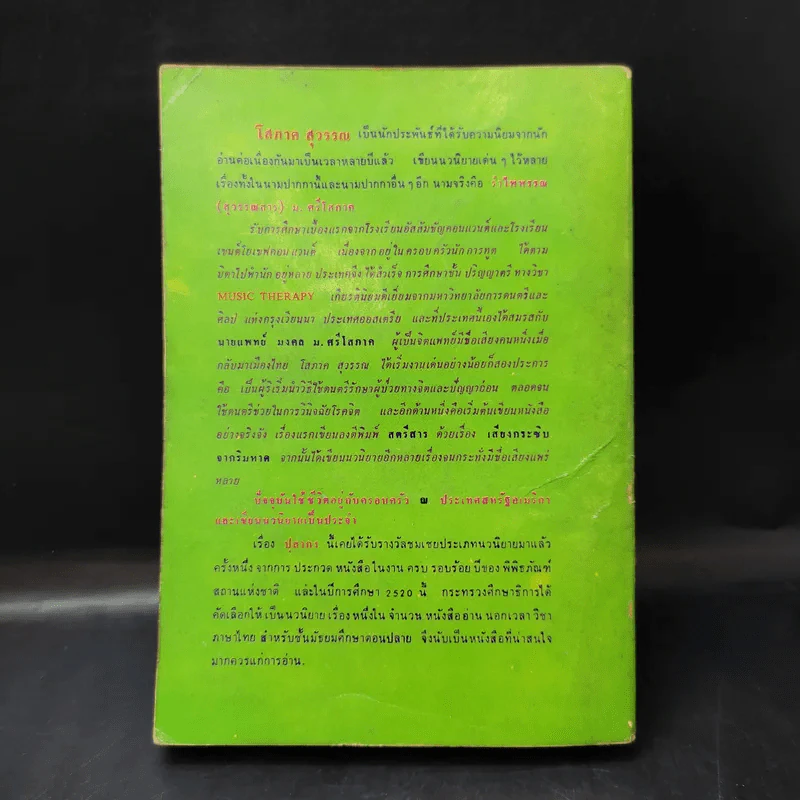 โสภาค สุวรรณ เป็นนักประพันธ์ที่ได้รับความนิยมจากนัก
อ่านต่อเนื่องกันมาเป็นเวลาหลายปีแล้ว เขียนนวนิยายเด่น ๆ ไว้หลาย
เรื่องทั้งในนามปากกานี้และนามปากกาอื่น ๆ อีก นามจริงคือ รำไพพรรณ
(สุวรรณสาร) ม. ศรีโสภาค
รับการศึกษาเบื้องแรกจากโรงเรียนอัสสัมชัญคอนแวนต์และโรงเรียน
เซนต์โยเซฟคอนแวนต์ เนื่องจากอยู่ในครอบครัวนักการทูต ได้ตาม
บิดาไปพำนักอยู่หลายประเทศจึงได้สำเร็จการศึกษาชั้นปริญญาตรี ทางวิชา
MUSIC THERAPY เกียรตินิยมดีเยี่ยมจากมหาวิทยาลัยการดนตรีและ
ศิลป แห่งกรุงเวียนนา ประเทศออสเตรีย และที่ประเทศนี้เองได้สมรสกับ
นายแพทย์ มงคล ม. ศรีโสภาค ผู้เป็นจิตแพทย์มีชื่อเสียงคนหนึ่งเมื่อ
กลับมาเมืองไทย โสภาค สุวรรณ ได้เริ่มงานเด่นอย่างน้อยก็สองประการ
คือ เป็นผู้ริเริ่มนำวิธีใช้ดนตรีรักษาผู้ป่วยทางจิตและปัญญาอ่อน ตลอดจน
ใช้ดนตรีช่วยในการวินิจฉัยโรคจิต และอีกด้านหนึ่งคือเริ่มต้นเขียนหนังสือ
อย่างจริงจัง เรื่องแรกเขียนลงตีพิมพ์ สตรีสาร ด้วยเรื่อง เสียงกระซิบ
จากริมหาด จากนั้นได้เขียนนวนิยายอีกหลายเรื่องจนกระทั่งมีชื่อเสียงแพร่
หลาย
ปัจจุบันใช้ชีวิตอยู่กับครอบครัว ณ ประเทศสหรัฐอเมริกา
และเขียนนวนิยายเป็นประจำ
เรื่อง ปุลากง นี้เคยได้รับรางวัลชมเชยประเภทนวนิยายมาแล้ว
ครั้งหนึ่ง จากการประกวดหนังสือในงานครบรอบร้อยปีของพิพิธภัณฑ์
สถานแห่งชาติ และในปีการศึกษา 2520 นี้ กระทรวงศึกษาธิการได้
คัดเลือกให้เป็นนวนิยายเรื่องหนึ่งในจำนวนหนังสืออ่านนอกเวลาวิชา
ภาษาไทย สำหรับชั้นมัธยมศึกษาตอนปลาย จึงนับเป็นหนังสือที่น่าสนใจ
มากควรแก่การอ่าน.